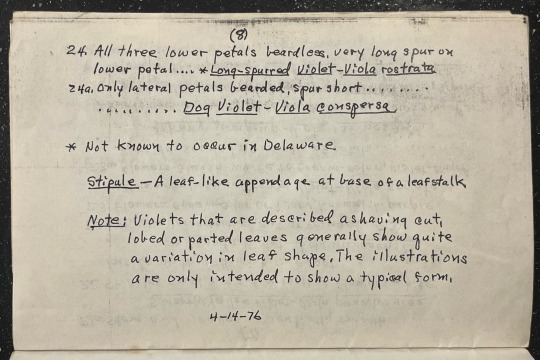 (8)
24. All three lower petals beardless, very long spur on
lower petal.... *Long-spurred Violet-Viola rostrata
24a. Only lateral petals bearded, spur short........
.......... Dog Violet-Viola conspersa
* Not known to occur in Delaware
Stipule - A leaf-like appendage at base of a leafstalk
Note: Violets that are described as having cut,
lobed or parted leaves generally show quite
a variation in leaf shape. The illustrations
are only intended to show a typical form.
4-14-76